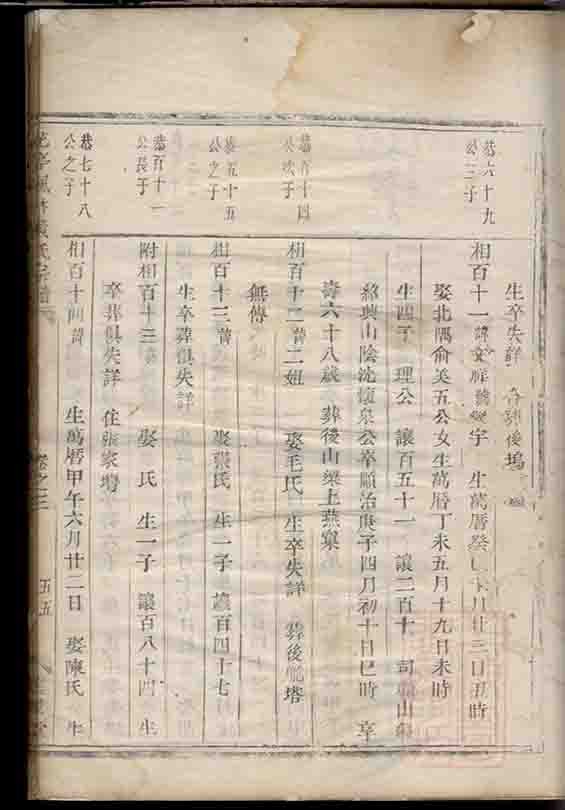 生卒失詳 後塢
恭六十九
公三子
相百十一諱文 宇 生萬曆癸 月廿三日丑時
娶北隅俞美五公女生萬曆丁未五月十九日未時
生四子 理公 讓百五十一 讓二百十 司 山
紹興山陰沈懷泉公卒順治庚子四月初十日巳時 享
壽六十八歲 葬後山梁上燕窠
恭百十四
公次子
相百十二諱二妞 娶毛氏 生卒失詳 葬後 塔
無傳
恭五十五
公之子
相百十三諱 娶張氏 生一子 讓百四十七
生卒葬俱失詳
恭百十一
公長子
附相百十三諱 娶 氏 生一子 讓百八十四 生
卒葬俱失詳 住張家塢
恭七十八
公之子
相百十四諱 生萬曆甲午六月廿二日 娶陳氏 生
氏宗譜 卷之三 五五